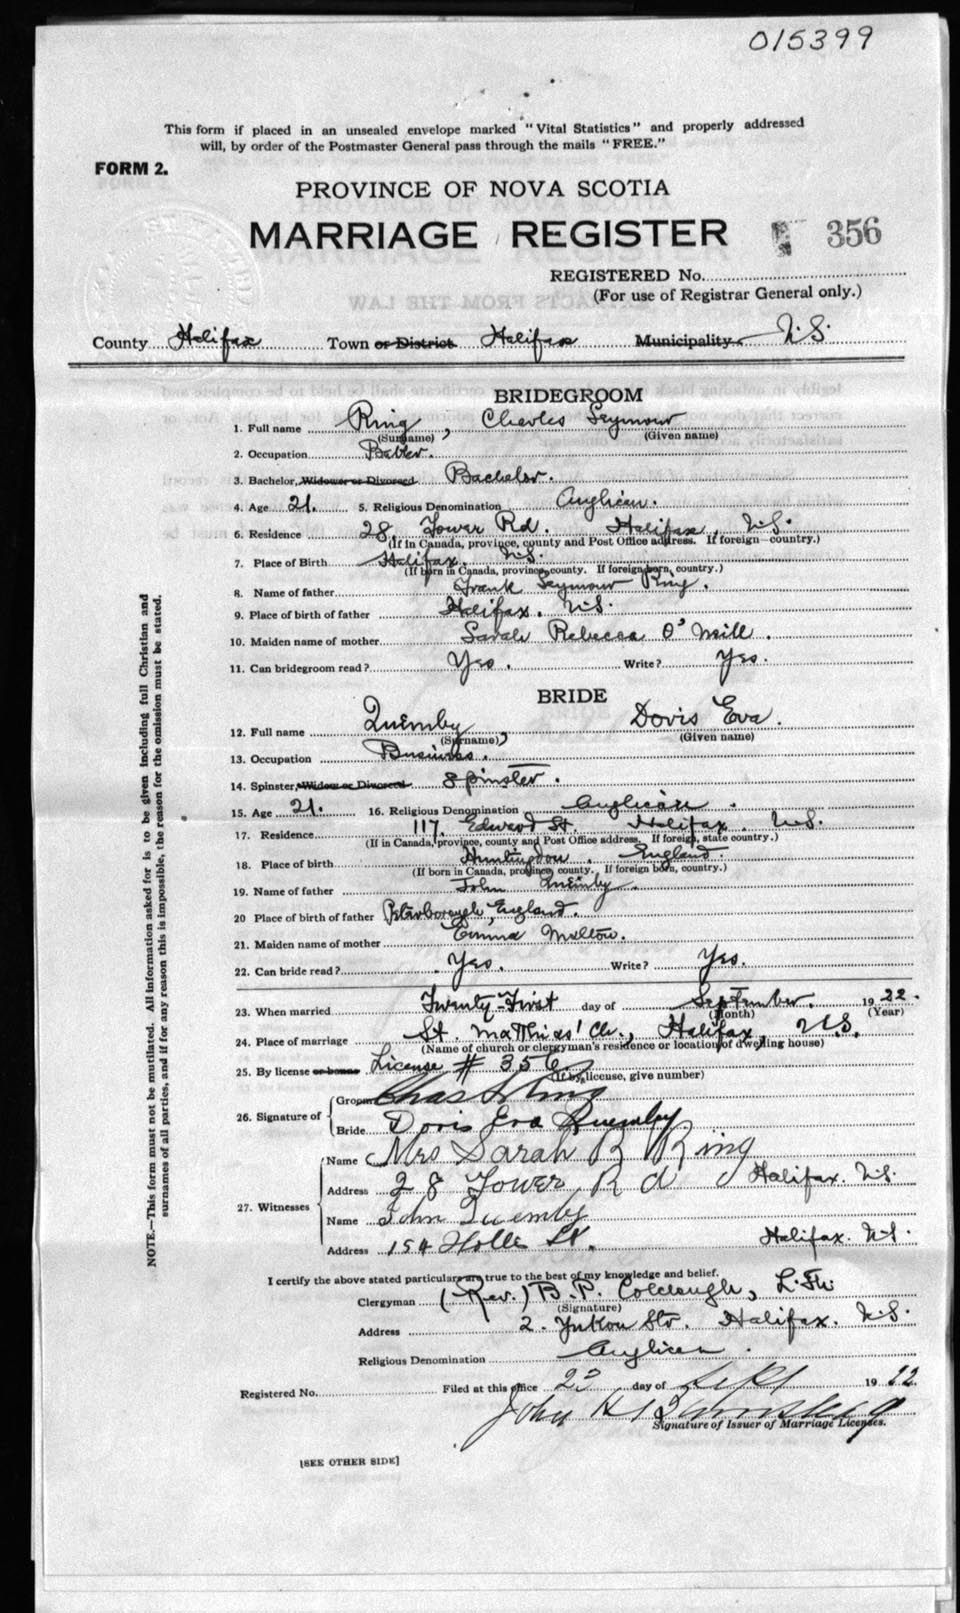 015399
This form if placed in an unsealed envelope marked "Vital Statistics" and properly addressed
will, by order of the Postmaster General pass through the mails "FREE."
FORM 2.
PROVINCE OF NOVA SCOTIA
MARRIAGE REGISTER 356
REGISTERED No.
(For use of Registrar General only.)
County Halifax Town or District Halifax Municipality N.S.
BRIDEGROOM
1. Full name Ring, Charles Seymour
(Surname) (Given name)
2. Occupation
3. Bachelor, Widower or Divorced Bachelor.
4. Age 21. 5. Religious Denomination Anglican.
6. Residence 28, Tower Rd. Halifax, N.S.
(If in Canada, province, county and Post Office address. If foreign—country.)
7. Place of Birth Halifax. N.S.
(If born in Canada, province, county. If foreign born, country.)
8. Name of father Frank Seymour Ring.
9. Place of birth of father Halifax. N.S.
10. Maiden name of mother Sarah Rebecca O'Neill.
11. Can bridegroom read? Yes. Write? Yes.
BRIDE
12. Full name Quemby, Doris Eva.
(Surname) (Given name)
13. Occupation Business.
14. Spinster, Widow or Divorced Spinster.
15. Age 21. 16. Religious Denomination Anglican.
17. Residence 117, Edward St. Halifax. N.S.
(If in Canada, province, county and Post Office address. If foreign, state country.)
18. Place of birth Huntingdon. England.
(If born in Canada, province, county. If foreign born, country.)
19. Name of father John Quemby.
20 Place of birth of father Peterborough, England.
21. Maiden name of mother Emma
22. Can bride read? Yes. Write? Yes.
23. When married Twenty-First day of September. 1922.
(Month) (Year)
24. Place of marriage St. Matthias' Ch., Halifax, N.S.
(Name of church or clergyman's residence or location of dwelling house)
25. By license or banns License # 356
(If by license, give number)
26. Signature of Groom Chas S Ring
Bride Doris Eva Quemby
27. Witnesses Name Mrs Sarah R Ring
Address 28 Tower Rd Halifax. N.S.
Name John Quemby
Address 154 Hollis St. Halifax. N.S.
I certify the above stated particulars are true to the best of my knowledge and belief.
Clergyman (Rev.) B. P. Colclough, L.Th.
(Signature)
Address 2. Yukon Str. Halifax. N.S.
Religious Denomination Anglican.
Registered No. Filed at this office 23 day of Sept 1922.
John H
Signature of Issuer of Marriage Licenses.
[SEE OTHER SIDE]
NOTE.—This form must not be mutilated. All information asked for is to be given including full Christian and
surnames of all parties, and if for any reason this is impossible, the reason for the omission must be stated.